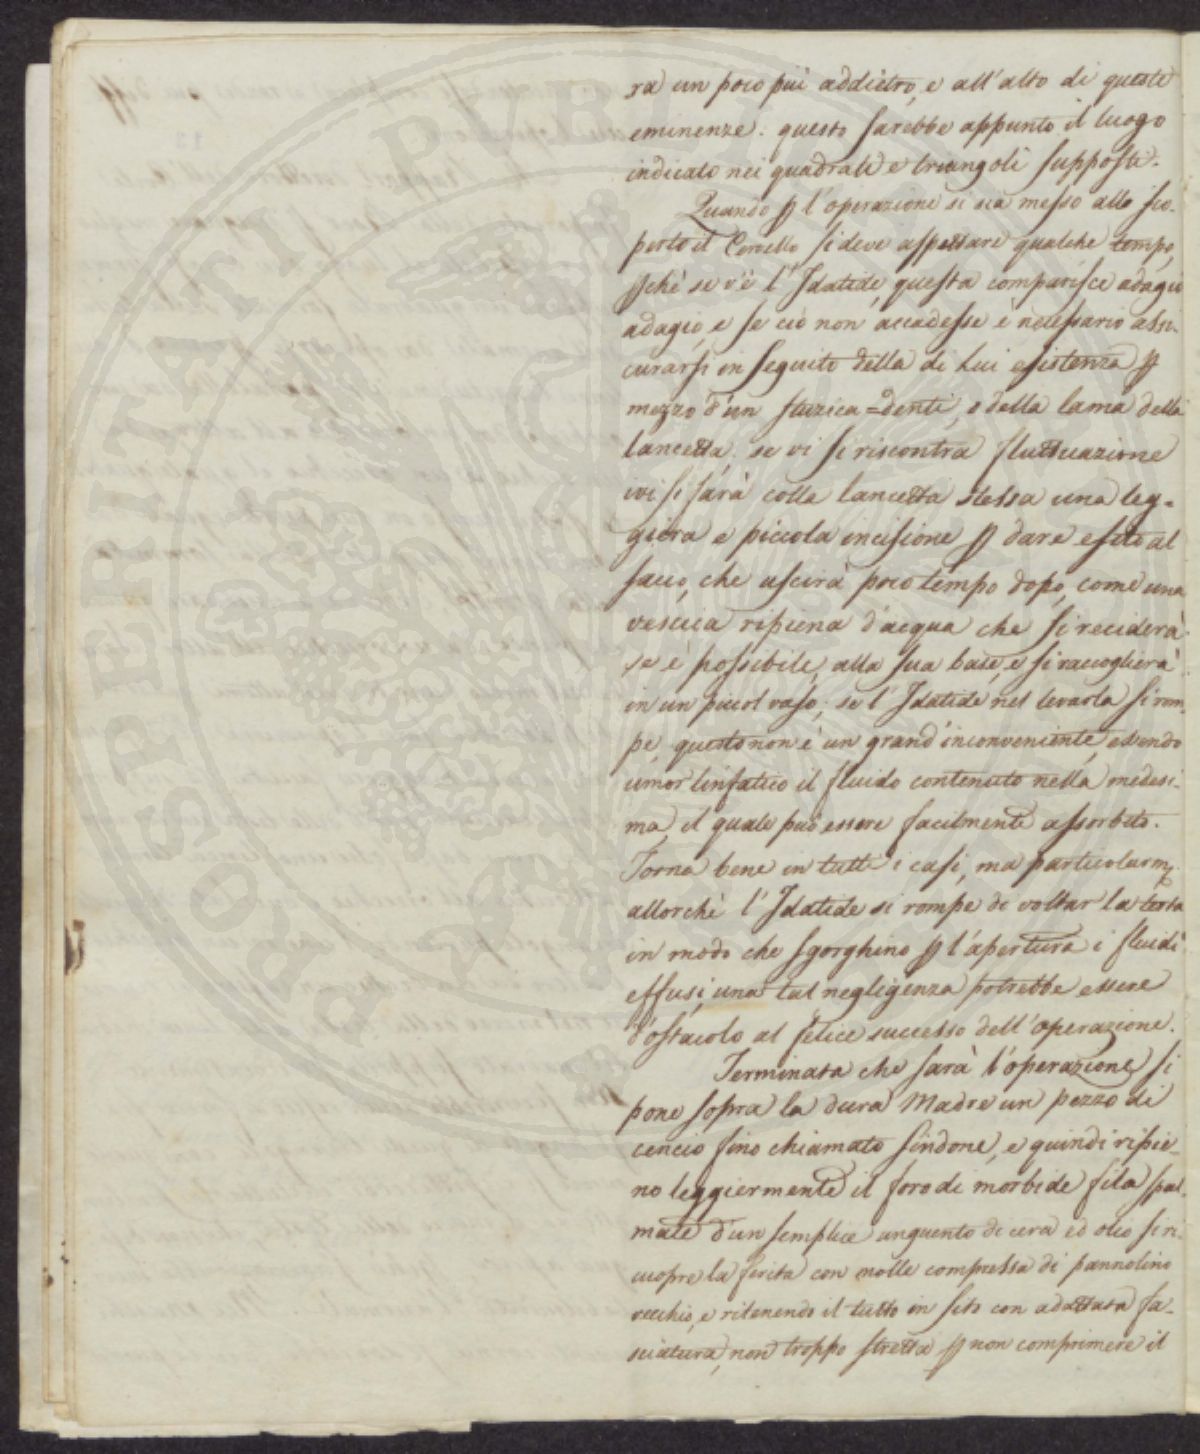 ra un poco più addietro, e all'alto di queste
eminenze: questo sarebbe appunto il luogo
indicato nei quadrati e triangoli supposti.
Quando p l'operazione si sia messo allo sco-
perto il Cervello si deve aspettare qualche tempo,
pchè se v'è l'Idatide, questa comparisce adagio
adagio, e se ciò non accadesse è necessario assi-
curarsi in seguito della di Lui esistenza p
mezzo d'un stuzica=denti, o della lama della
lancetta. se vi si riscontra fluttuazione
ivi si farà colla lancetta stessa una leg=
giera e piccola incisione p dare esito al
sacco, che uscirà poco tempo dopo, come una
vescica ripiena d'acqua che si reciderà
se è possibile, alla sua base, e si raccoglierà
in un piccol vaso; se l'Idatide nel levarla si rom-
pe, questo non è un grand'inconveniente, essendo
umor linfatico il fluido contenuto nella medesi-
ma, il quale può essere facilmente assorbito.
Torna bene in tutti i casi, ma particolarm.
allorchè l'Idatide si rompe di voltar la testa
in modo che sgorghino p l'apertura i fluidi
effusi, una tal negligenza potrebbe essere
d'ostacolo al felice successo dell'operazione.
Terminata che sarà l'operazione si
pone sopra la dura Madre un pezzo di
cencio fino chiamato sindone, e quindi ripie-
no leggiermente il foro di morbide fila spal-
mate d'un semplice unguento di cera ed olio si ri-
cuopre la ferita con molle compressa di pannolino
vecchio, e ritenendo il tutto in sito con adattata fa-
sciatura, non troppo stretta p non comprimere il
PROSPERITATI PUBLICAE